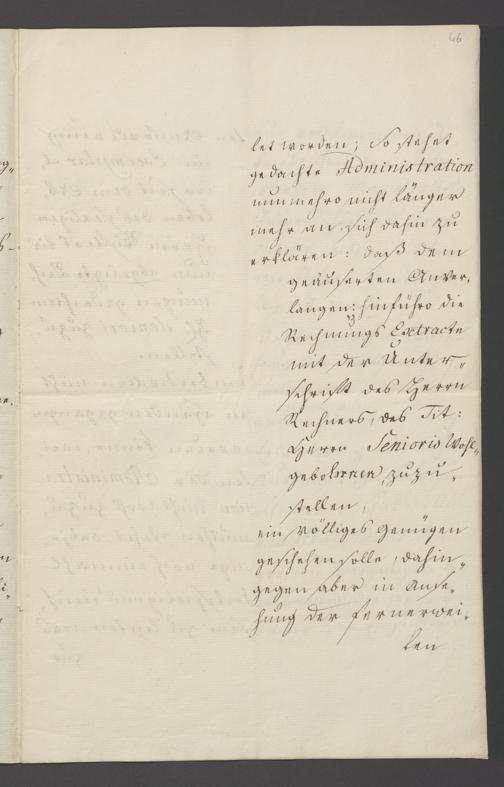 46
let worden; So stehet
gedachte Administration
nunmehro nicht länger
mehr an sich dahin zu
erklären: daß dem
geäuserten Anver„
langen: hinführo die
Rechnungs Extracte
mit der Unter„
schrifft des Herrn
Rechners, des Tit:
Herrn Senioris Wohl„
gebohrnen, zuzu„
stellen,
ein völliges Genügen
geschehen solle, dahin„
gegen aber in Anse„
hung der fernerwei„
ten